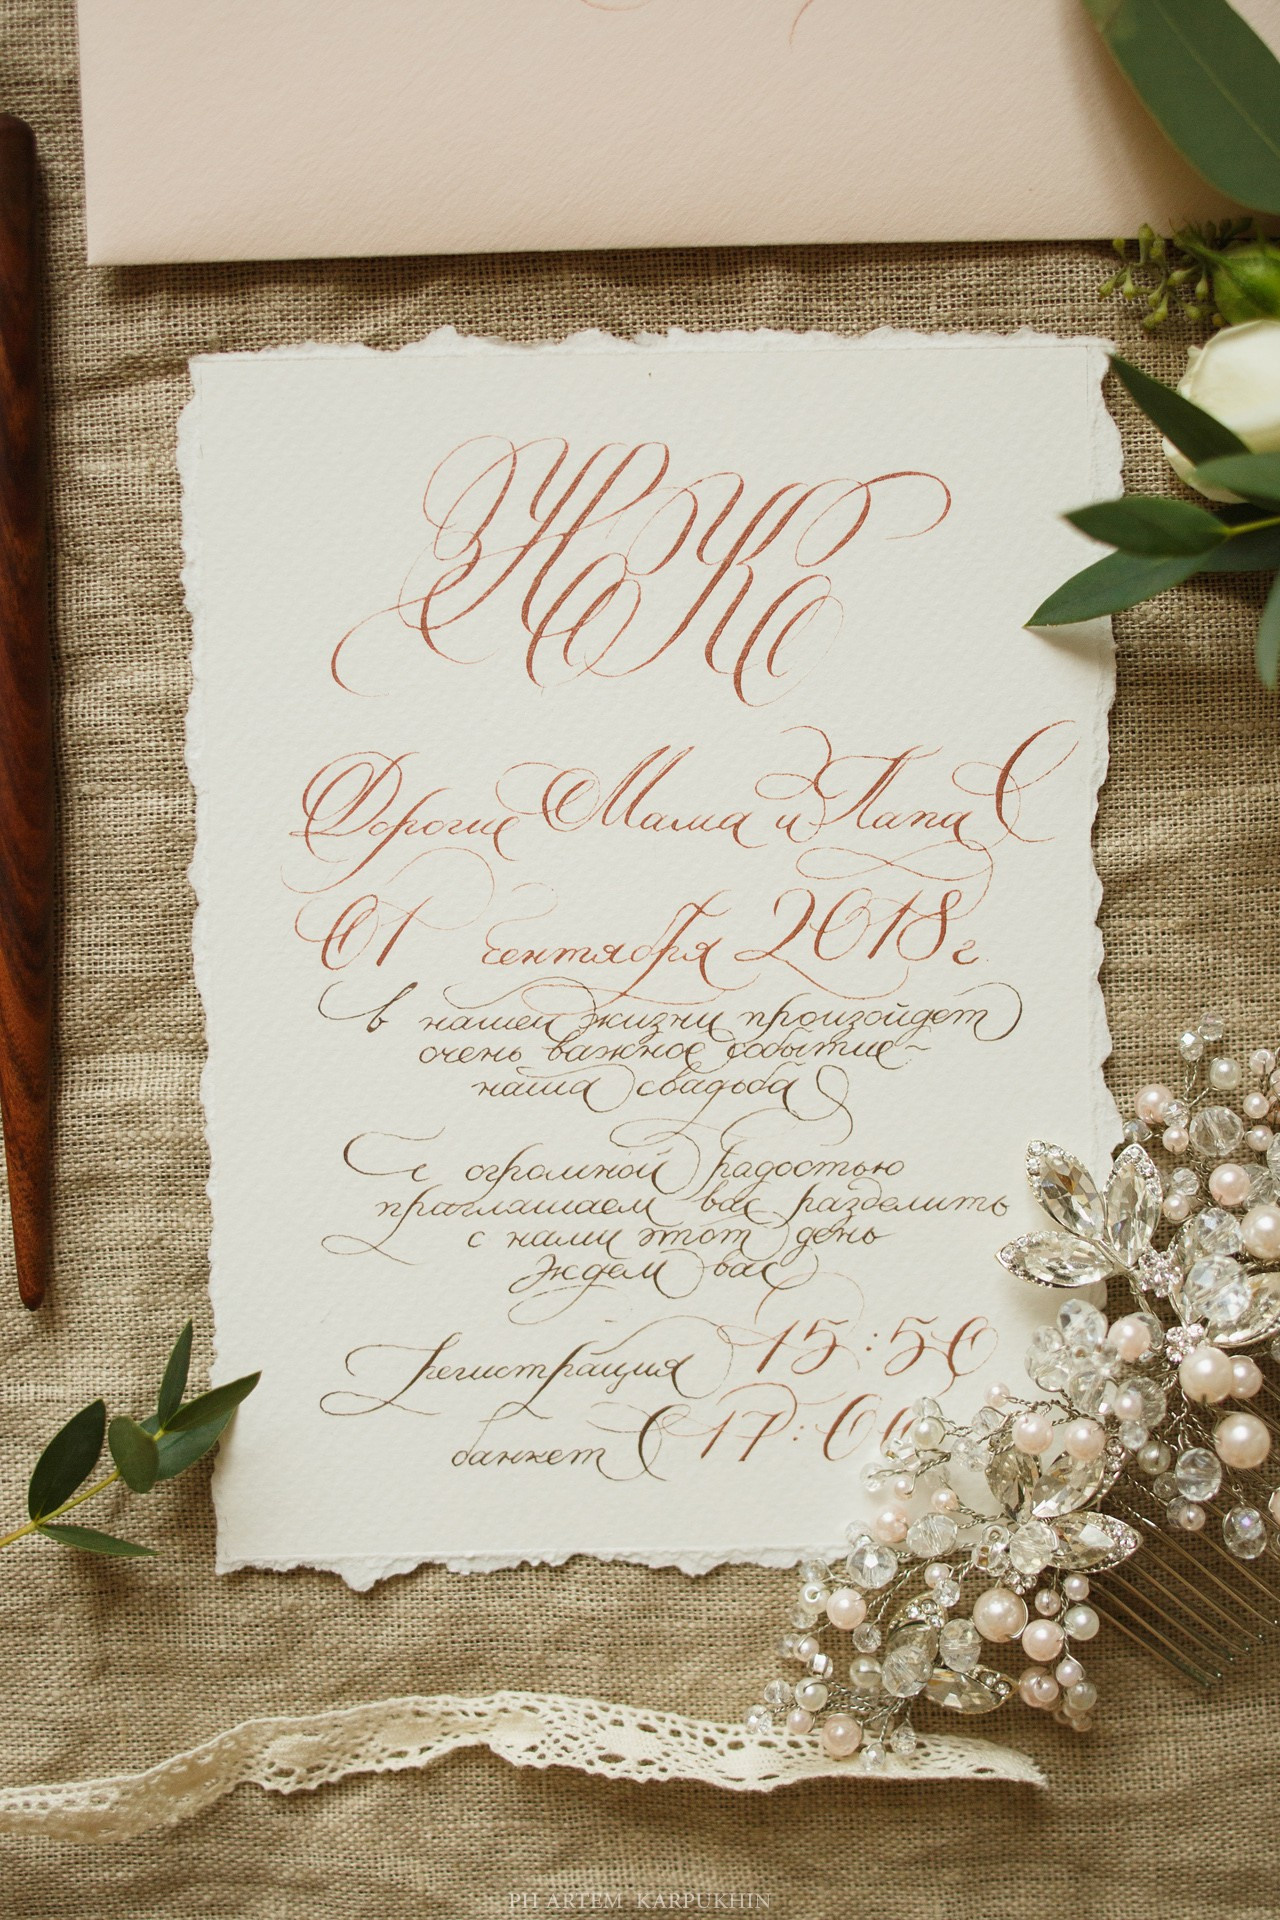 Дорогие Мама и Папа
01 сентября 2018 г.
в нашей жизни произойдет
очень важное событие -
наша свадьба
С огромной радостью
приглашаем вас разделить
с нами этот день
Ждем вас
регистрация 15:50
банкет 17:00
PH ARTEM KARPUKHIN